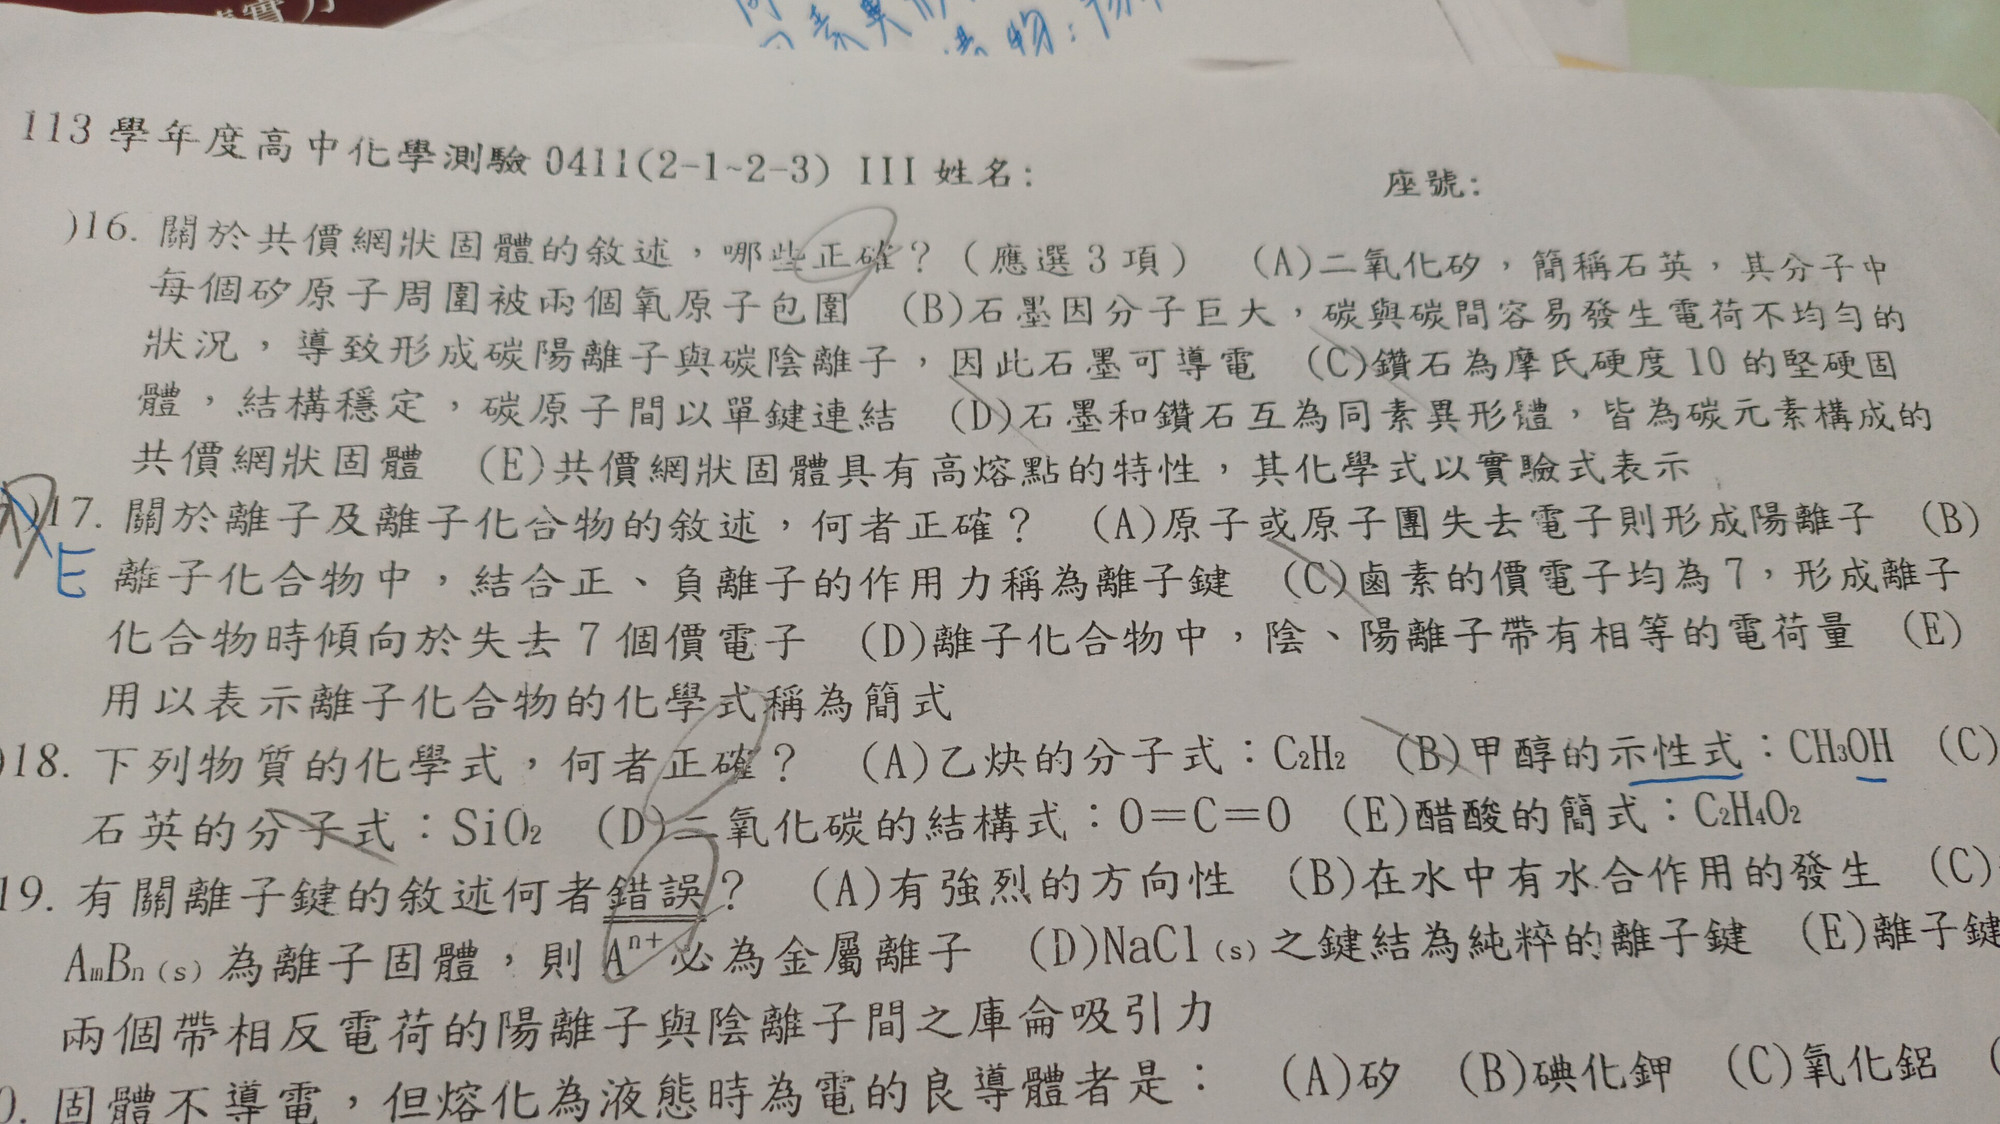 素異
物:
113學年度高中化學測驗0411(2-1~2-3) III 姓名: 座號:
)16. 關於共價網狀固體的敘述，哪些正確？（應選3項） (A)二氧化矽，簡稱石英，其分子中
每個矽原子周圍被兩個氧原子包圍 (B)石墨因分子巨大，碳與碳間容易發生電荷不均勻的
狀況，導致形成碳陽離子與碳陰離子，因此石墨可導電 (C)鑽石為摩氏硬度10的堅硬固
體，結構穩定，碳原子間以單鍵連結 (D)石墨和鑽石互為同素異形體，皆為碳元素構成的
共價網狀固體 (E)共價網狀固體具有高熔點的特性，其化學式以實驗式表示
)17. 關於離子及離子化合物的敘述，何者正確？ (A)原子或原子團失去電子則形成陽離子 (B)
E 離子化合物中，結合正、負離子的作用力稱為離子鍵 (C)鹵素的價電子均為7，形成離子
化合物時傾向於失去7個價電子 (D)離子化合物中，陰、陽離子帶有相等的電荷量 (E)
用以表示離子化合物的化學式稱為簡式
)18. 下列物質的化學式，何者正確？ (A)乙炔的分子式：C2H2 (B)甲醇的示性式：CH3OH (C)
石英的分子式：SiO2 (D)二氧化碳的結構式：O=C=O (E)醋酸的簡式：C2H4O2
19. 有關離子鍵的敘述何者錯誤？ (A)有強烈的方向性 (B)在水中有水合作用的發生 (C)
AmBn(s)為離子固體，則Aⁿ⁺必為金屬離子 (D)NaCl(s)之鍵結為純粹的離子鍵 (E)離子鍵
兩個帶相反電荷的陽離子與陰離子間之庫侖吸引力
). 固體不導電，但熔化為液態時為電的良導體者是： (A)矽 (B)碘化鉀 (C)氧化鋁 (